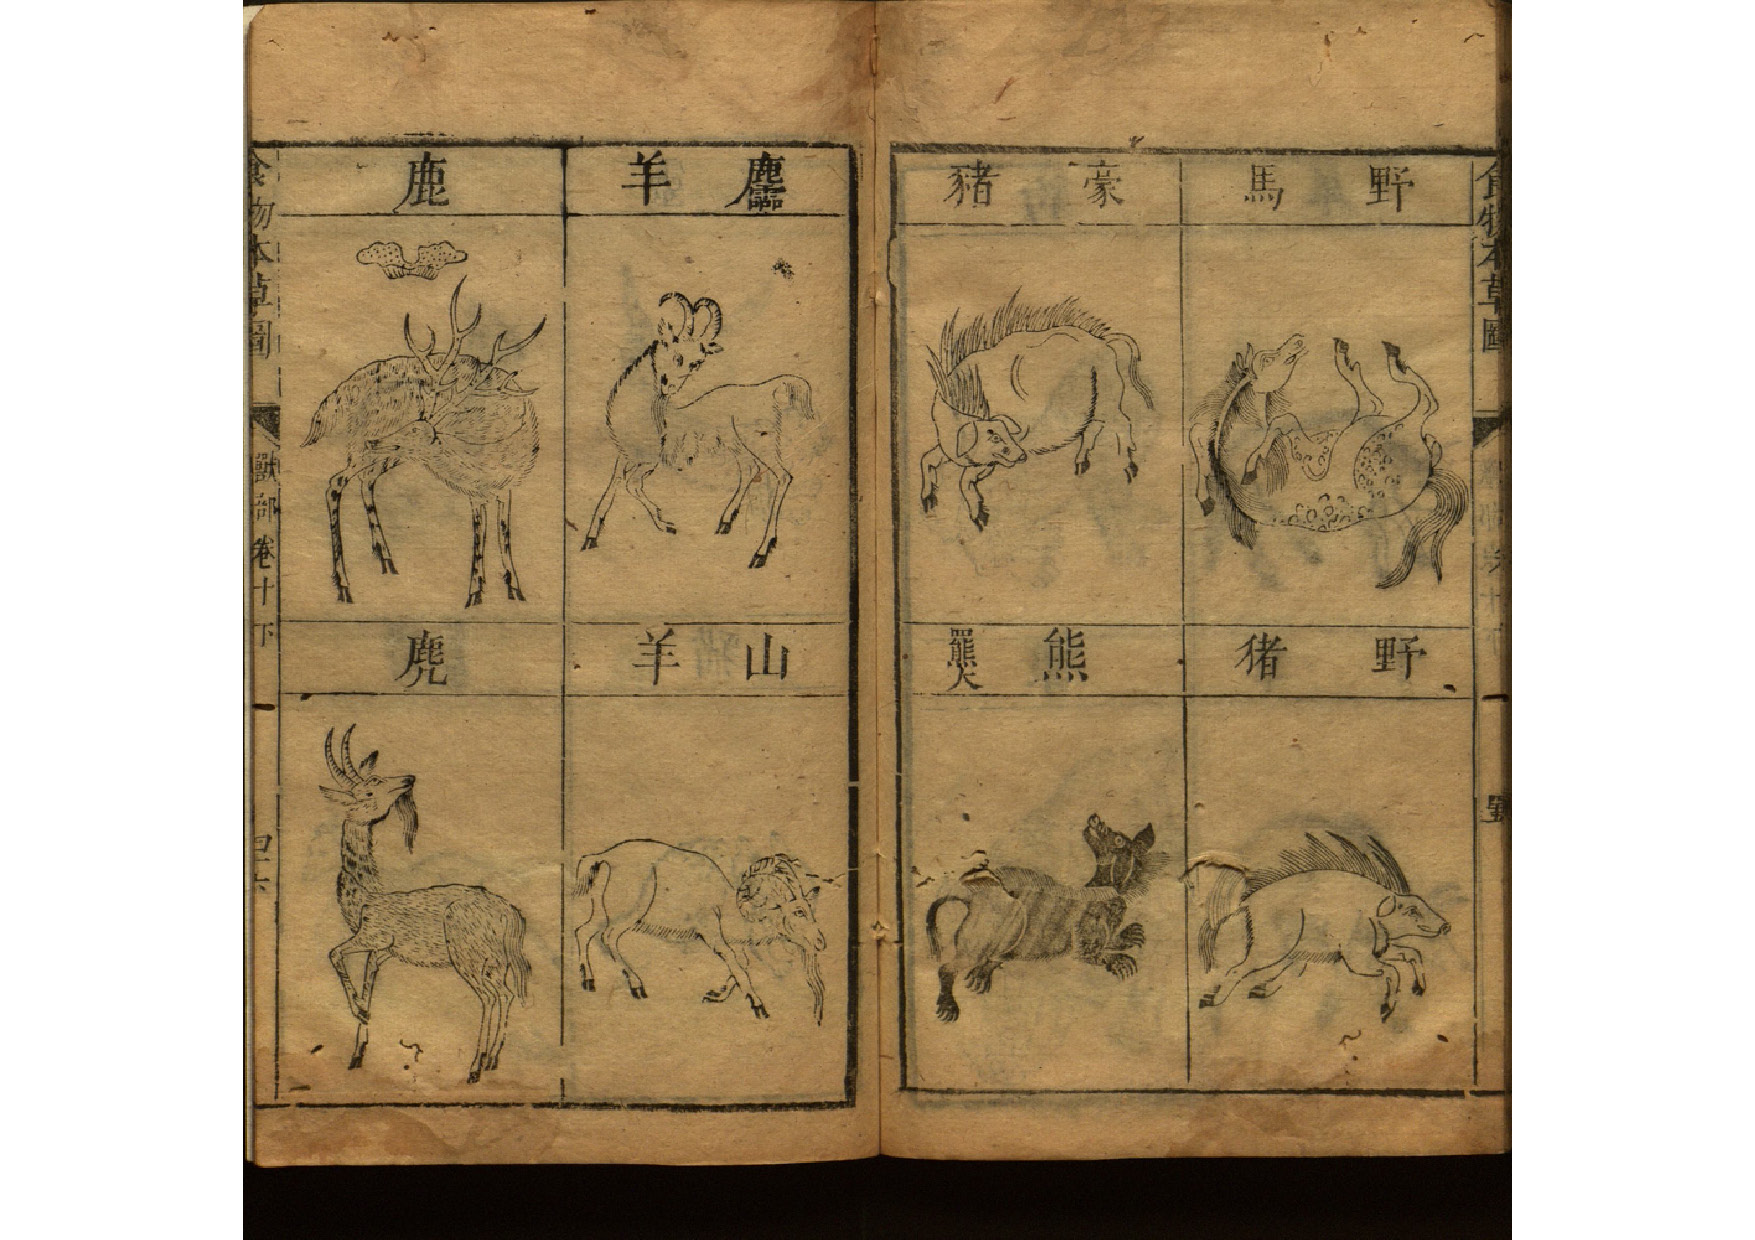 食物本草圖
野馬
豪豬
野猪
熊羆
麢羊
鹿
山羊
麂
食物本草圖
獸部卷十下